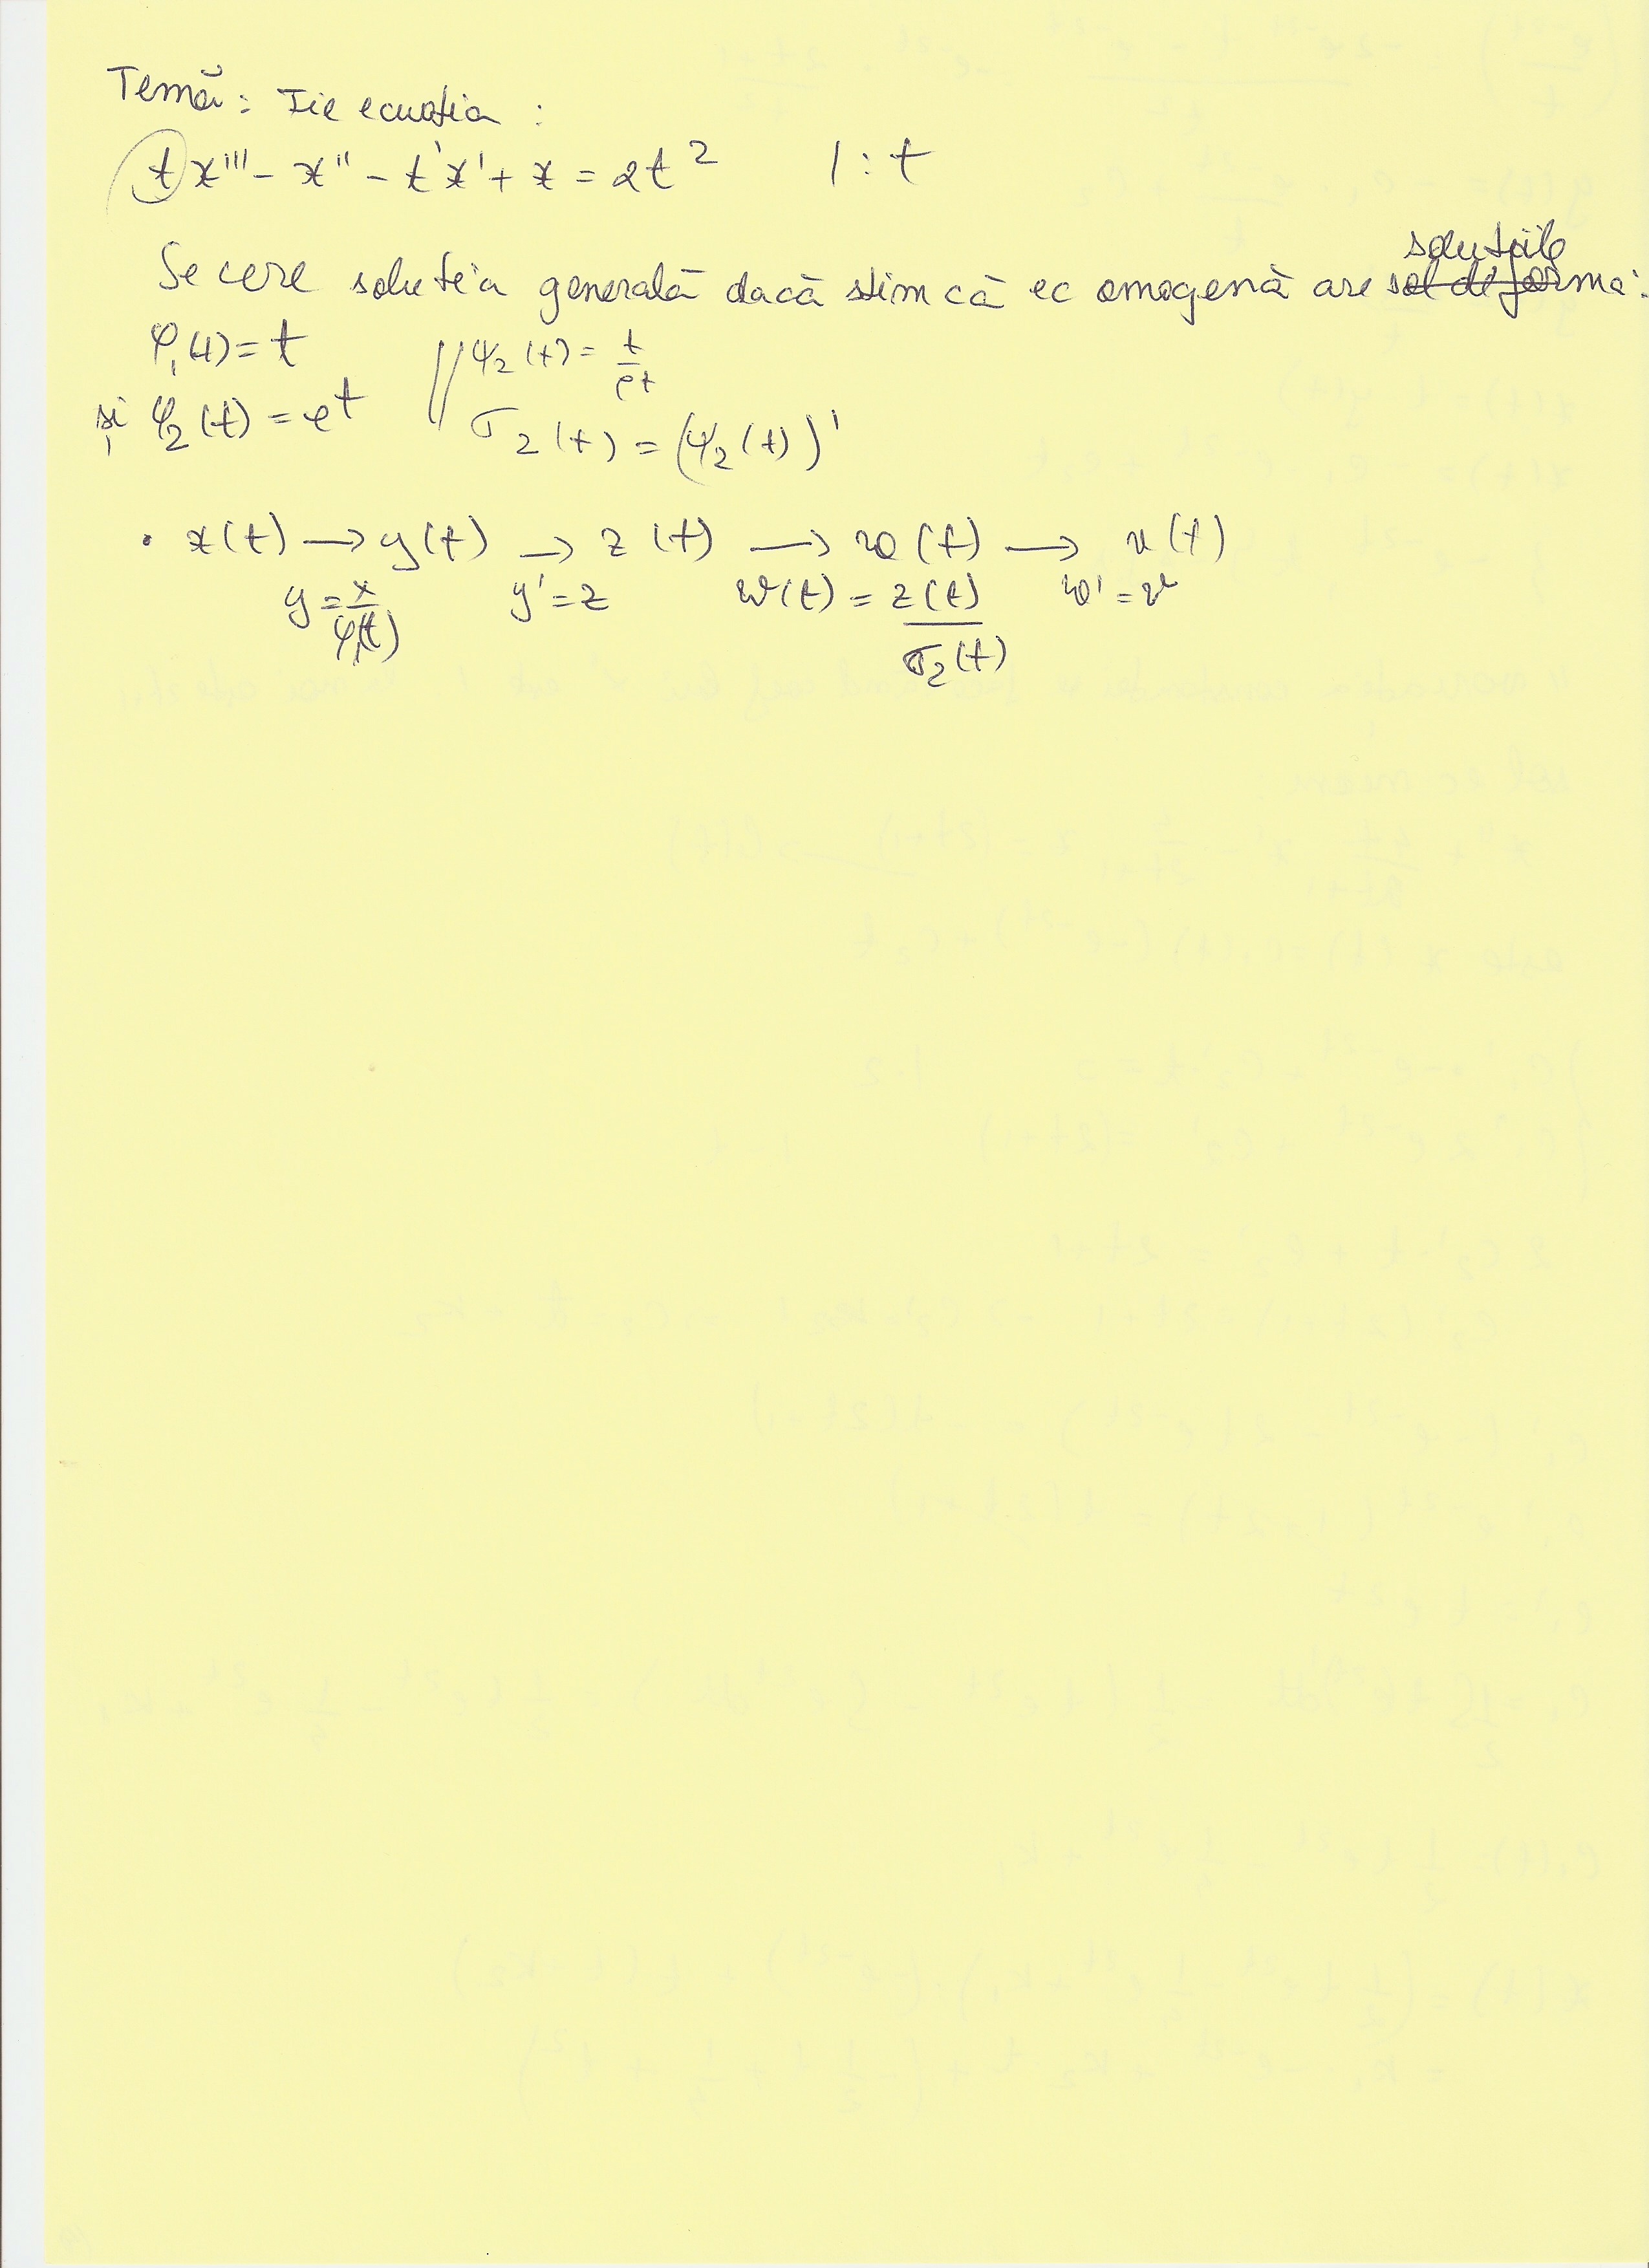 Temă: Fie ecuația :
t x''' - x'' - t x' + x = 2t² | : t
soluțiile
Se cere soluția generală dacă știm că ec omogenă are sol de forma :
φ₁(t) = t // ψ₂(t) = t/e^t
și φ₂(t) = e^t // σ₂(t) = (ψ₂(t))'
• x(t) → y(t) → z(t) → w(t) → v(t)
y = x/φ₁(t) y' = z w(t) = z(t)/σ₂(t) w' = v